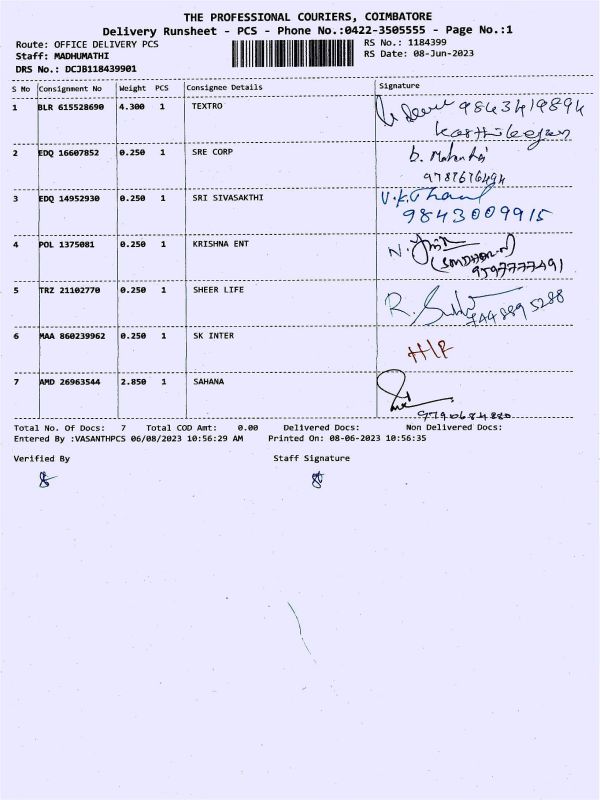 THE PROFESSIONAL COURIERS, COIMBATORE
Delivery Runsheet - PCS - Phone No.:0422-3505555 - Page No.:1
Route: OFFICE DELIVERY PCS
RS No.: 1184399
Staff: MADHUMATHI
RS Date: 08-Jun-2023
DRS No.: DCJB118439901
S No Consignment No Weight PCS Consignee Details Signature
1 BLR 615528690 4.300 1 TEXTRO 9843419894
Karthikeyan
2 EDQ 16607852 0.250 1 SRE CORP b.
9787676494
3 EDQ 14952930 0.250 1 SRI SIVASAKTHI V.K.
9843009915
4 POL 1375081 0.250 1 KRISHNA ENT N.
9597777491
5 TRZ 21102770 0.250 1 SHEER LIFE R.
7448895288
6 MAA 860239962 0.250 1 SK INTER
7 AMD 26963544 2.850 1 SAHANA
9790684880
Total No. Of Docs: 7 Total COD Amt: 0.00 Delivered Docs: Non Delivered Docs:
Entered By :VASANTHPCS 06/08/2023 10:56:29 AM Printed On: 08-06-2023 10:56:35
Verified By Staff Signature